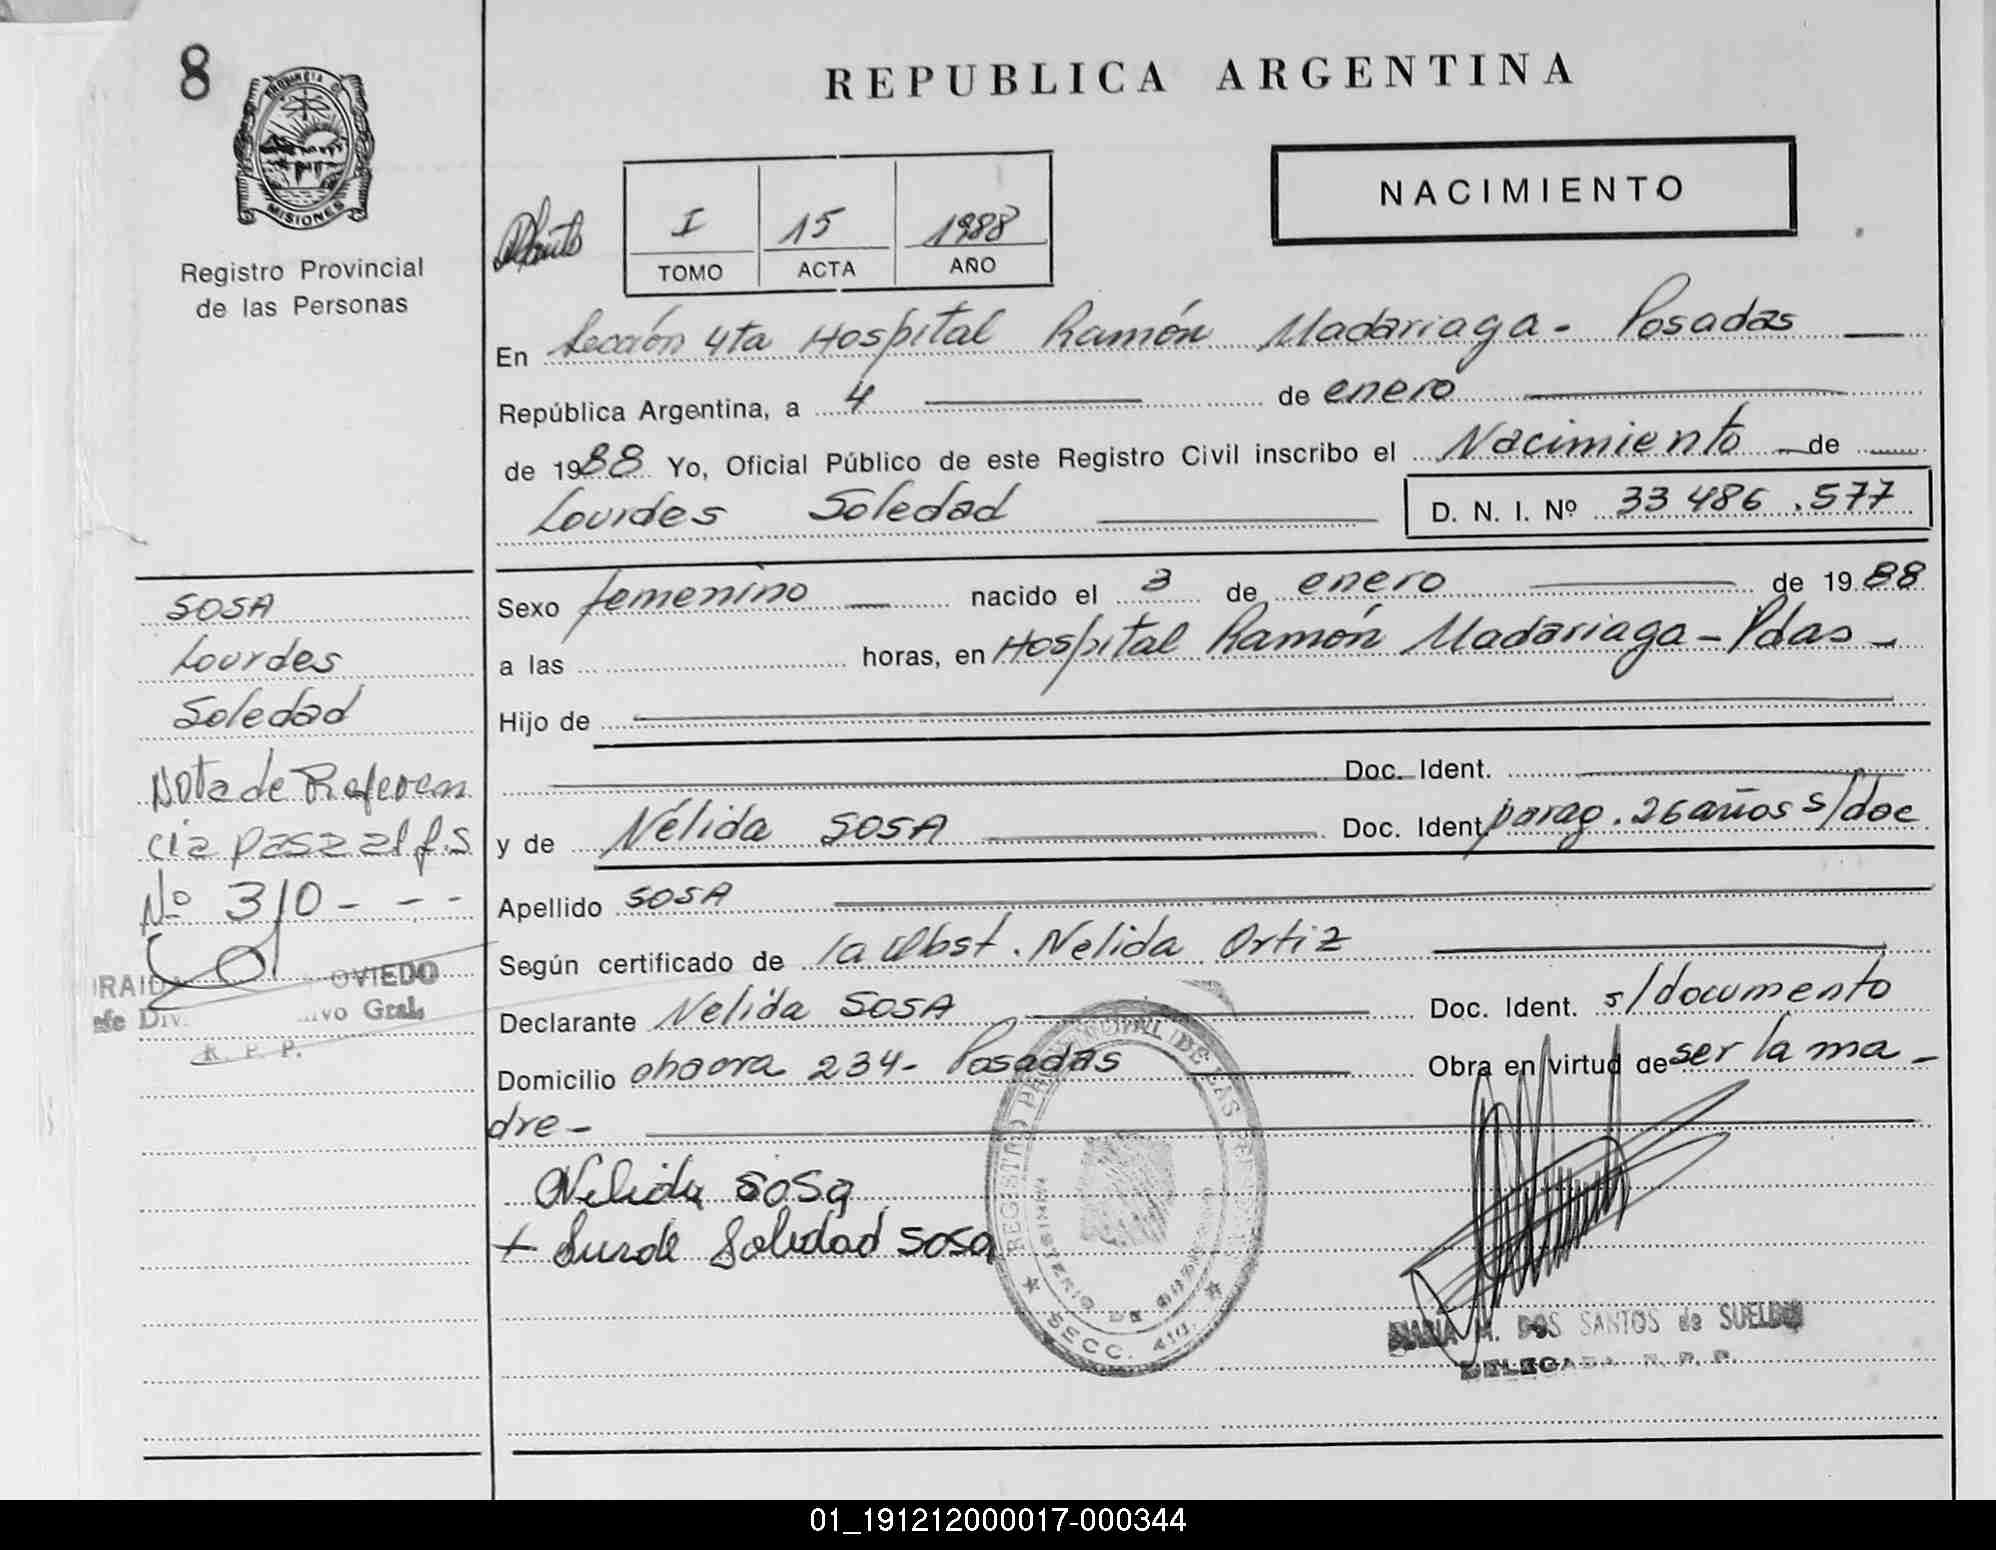 8
PROVINCIA DE
MISIONES
Registro Provincial
de las Personas
REPUBLICA ARGENTINA
NACIMIENTO
I 15 1988
TOMO ACTA AÑO
En Sección 4ta Hospital Ramón Madariaga - Posadas
República Argentina, a 4 de enero
de 1988 Yo, Oficial Público de este Registro Civil inscribo el Nacimiento de
Lourdes Soledad D. N. I. Nº 33 486.577
Sexo femenino nacido el 3 de enero de 1988
a las horas, en Hospital Ramón Madariaga - Pdas -
Hijo de
Doc. Ident.
y de Nélida SOSA Doc. Ident. parag. 26 años s/doc
Apellido SOSA
Según certificado de la Obst. Nelida Ortiz
Declarante Nelida SOSA Doc. Ident. s/documento
Domicilio 234 - Posadas Obra en virtud de ser la ma -
dre -
Nelida Sosa
+ Soledad Sosa
SOSA
Lourdes
Soledad
Nota de Referen
cia pasa al f.s
Nº 310 - - -
OVIEDO
Div. Gral.
R. P. P.
REGISTRO PROVINCIAL DE LAS PERSONAS
MINISTERIO DE GOBIERNO
SECC. 4ta.
MARIA M. DOS SANTOS de SUELDO
DELEGADA R. P. P.
01_191212000017-000344